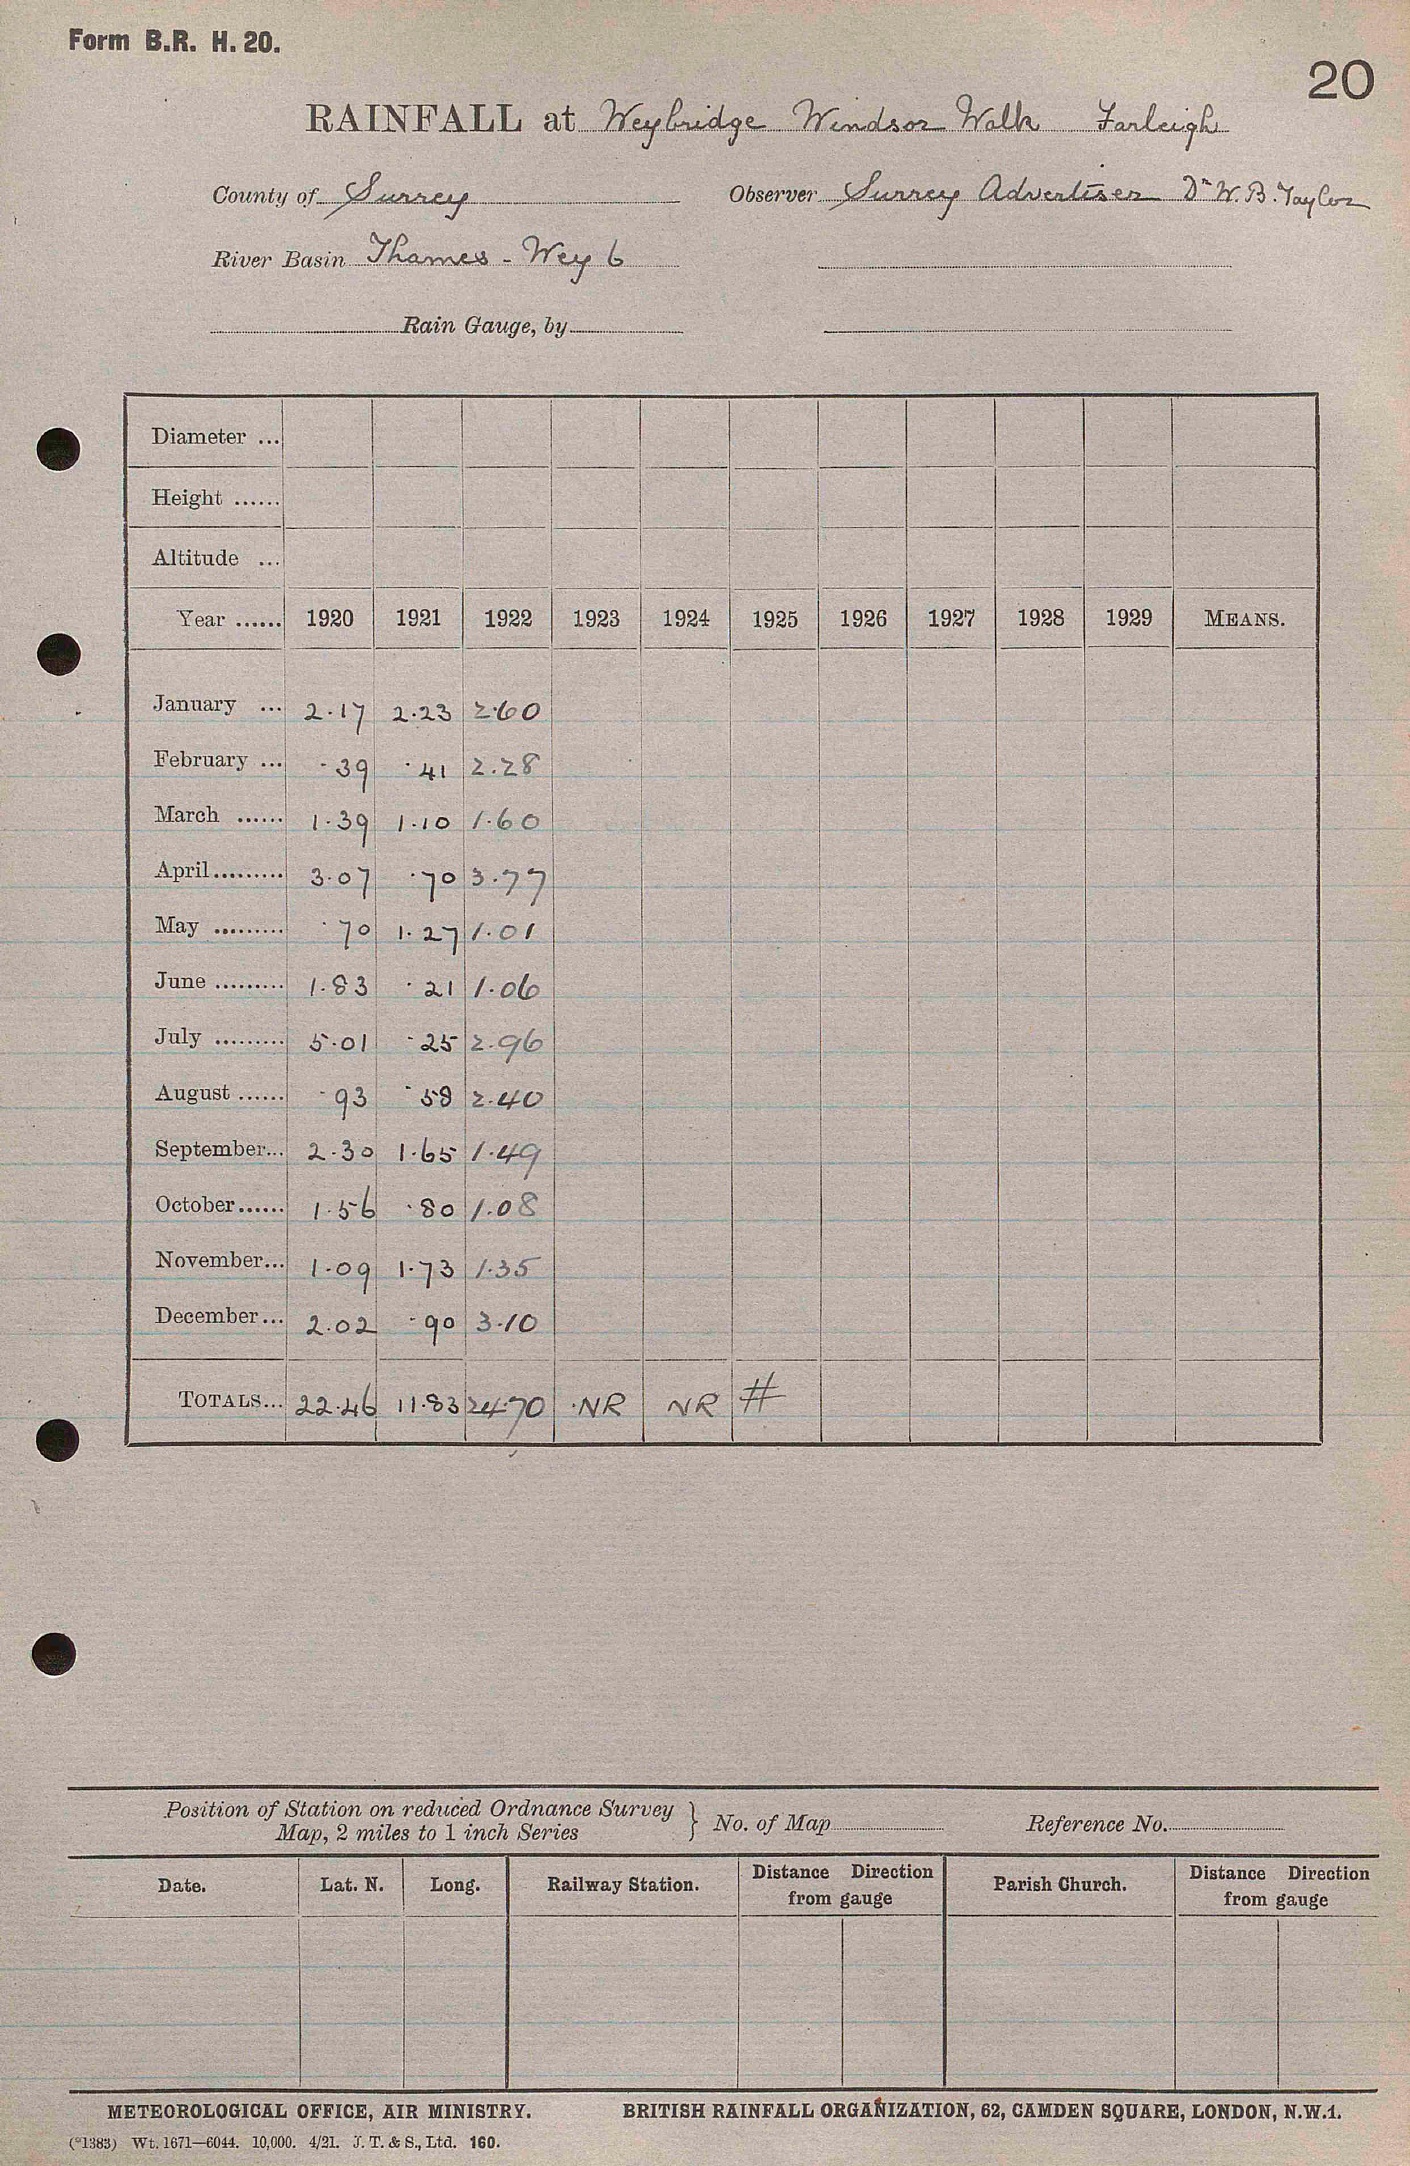 Form B.R. H. 20.
20
RAINFALL at Weybridge Windsor Walk Farleigh
County of Surrey Observer Surrey Advertiser Dr W. B. Taylor
River Basin Thames - Wey 6
Rain Gauge, by
Diameter ...
Height ......
Altitude ...
Year ...... 1920 1921 1922 1923 1924 1925 1926 1927 1928 1929 MEANS.
January ... 2.17 2.23 2.60
February ... .39 .41 2.28
March ...... 1.39 1.10 1.60
April......... 3.07 .70 3.77
May ......... .70 1.27 1.01
June ......... 1.83 .21 1.06
July ......... 5.01 .25 2.96
August ...... .93 .58 2.40
September... 2.30 1.65 1.49
October...... 1.56 .80 1.08
November... 1.09 1.73 1.35
December... 2.02 .90 3.10
TOTALS... 22.46 11.83 24.70 NR NR #
Position of Station on reduced Ordnance Survey
Map, 2 miles to 1 inch Series } No. of Map Reference No.
Date. Lat. N. Long. Railway Station. Distance Direction from gauge Parish Church. Distance Direction from gauge
METEOROLOGICAL OFFICE, AIR MINISTRY. BRITISH RAINFALL ORGANIZATION, 62, CAMDEN SQUARE, LONDON, N.W.1.
(*1383) Wt. 1671—6044. 10,000. 4/21. J. T. & S., Ltd. 160.